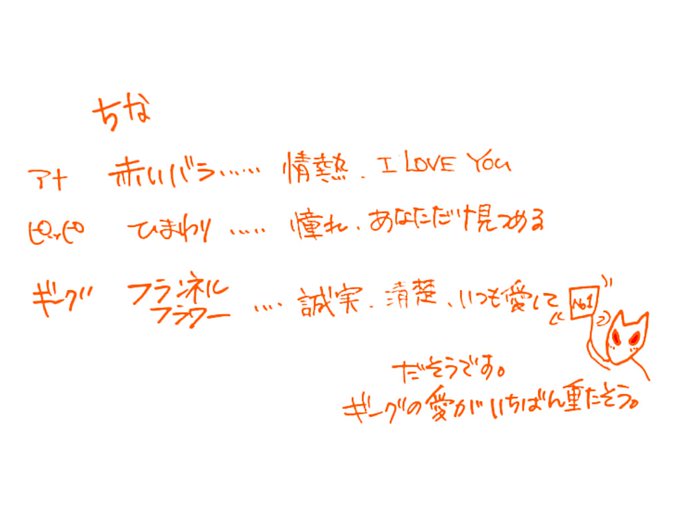 ちな
アナ 赤いバラ…… 情熱、I LOVE YOU
ピッピ ひまわり …… 憧れ、あなただけ見つめる
ギーグ フランネルフラワー …. 誠実、清楚、いつも愛して
No.1
だそうです。
ギーグの愛がいちばん重たそう。